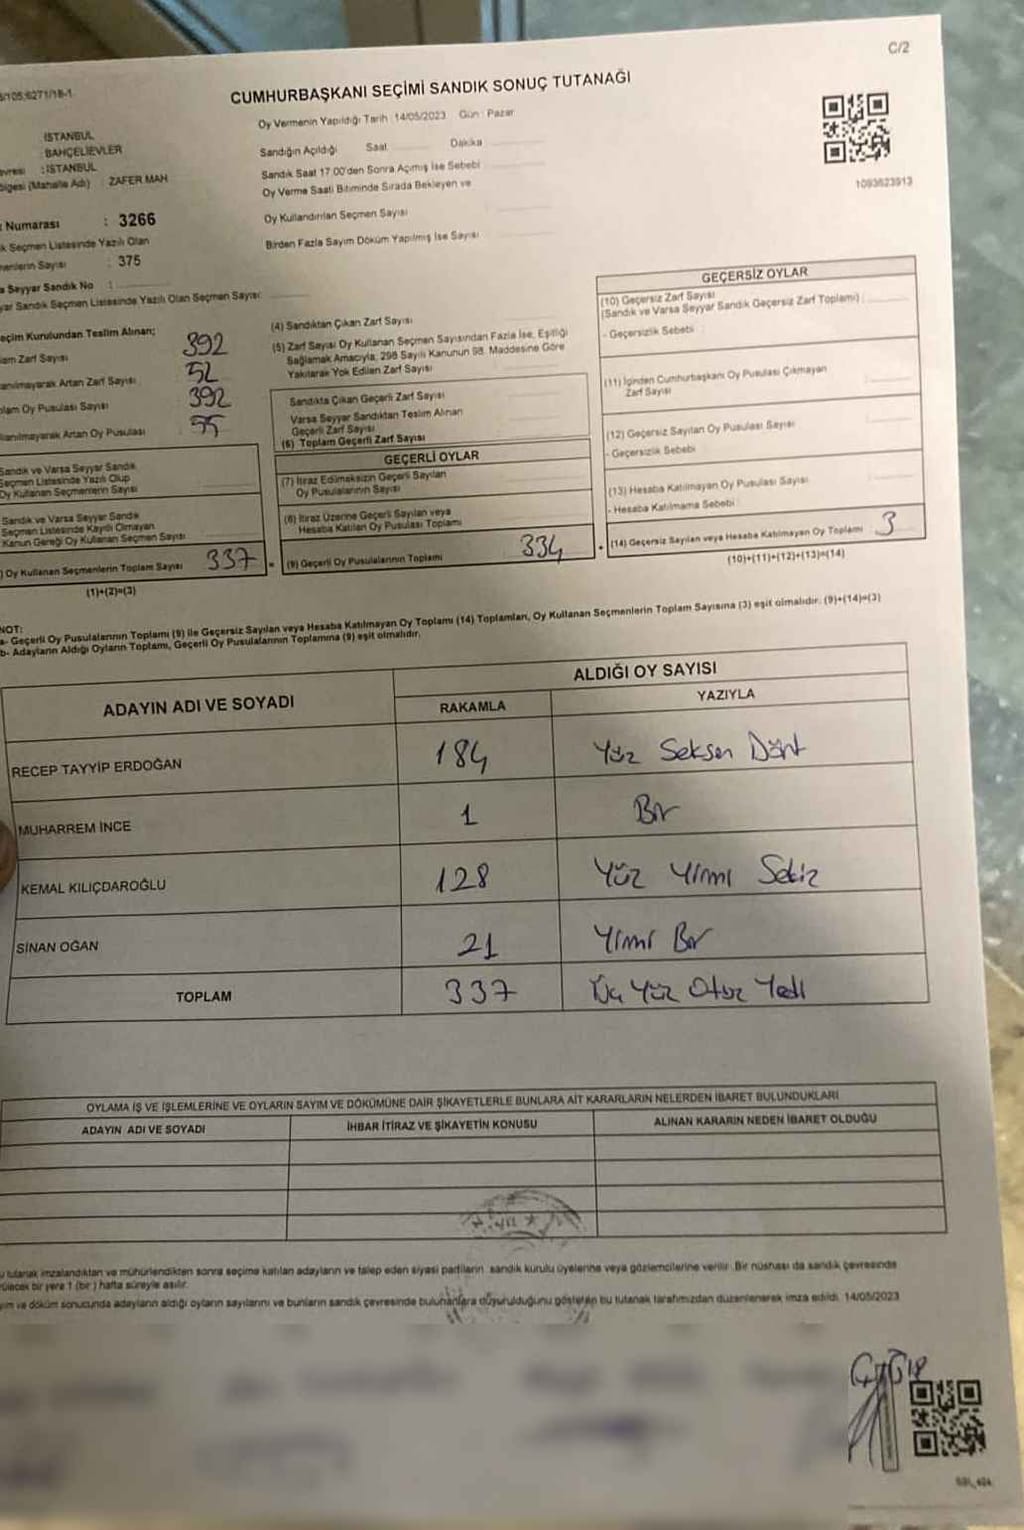 C/2
CUMHURBAŞKANI SEÇİMİ SANDIK SONUÇ TUTANAĞI
Oy Vermenin Yapıldığı Tarih : 14/05/2023 Gün : Pazar
Sandığın Açıldığı Saat Dakika
Sandık Saat 17:00'den Sonra Açımış İse Sebebi
Oy Verme Saati Bitiminde Sırada Bekleyen ve
Oy Kullandırılan Seçmen Sayısı
Birden Fazla Sayım Döküm Yapılmış İse Sayısı
1093623913
İSTANBUL
BAHÇELİEVLER
: İSTANBUL
(Mahalle Adı) : ZAFER MAH
Numarası : 3266
Seçmen Listesinde Yazılı Olan
Sayısı : 375
Seyyar Sandık No :
Sandık Seçmen Listesinde Yazılı Olan Seçmen Sayısı:
Kurulundan Teslim Alınan;
Zarf Sayısı 392
Artan Zarf Sayısı 52
Oy Pusulası Sayısı 392
Artan Oy Pusulası 55
Sandık ve Varsa Seyyar Sandık
Seçmen Listesinde Yazılı Olup
Oy Kullanan Seçmenlerin Sayısı
Sandık ve Varsa Seyyar Sandık
Seçmen Listesinde Kayıtlı Olmayan
Kanun Gereği Oy Kullanan Seçmen Sayısı
Oy Kullanan Seçmenlerin Toplam Sayısı 337
(1)+(2)=(3)
(4) Sandıktan Çıkan Zarf Sayısı
(5) Zarf Sayısı Oy Kullanan Seçmen Sayısından Fazla İse, Eşitliği
Sağlamak Amacıyla, 298 Sayılı Kanunun 98. Maddesine Göre
Yakılarak Yok Edilen Zarf Sayısı
Sandıkta Çıkan Geçerli Zarf Sayısı
Varsa Seyyar Sandıktan Teslim Alınan
Geçerli Zarf Sayısı
(6) Toplam Geçerli Zarf Sayısı
GEÇERLİ OYLAR
(7) İtiraz Edilmeksizin Geçerli Sayılan
Oy Pusulalarının Sayısı
(8) İtiraz Üzerine Geçerli Sayılan veya
Hesaba Katılan Oy Pusulası Toplamı
(9) Geçerli Oy Pusulalarının Toplamı 334
GEÇERSİZ OYLAR
(10) Geçersiz Zarf Sayısı
(Sandık ve Varsa Seyyar Sandık Geçersiz Zarf Toplamı) :
- Geçersizlik Sebebi :
(11) İçinden Cumhurbaşkanı Oy Pusulası Çıkmayan
Zarf Sayısı
(12) Geçersiz Sayılan Oy Pusulası Sayısı
- Geçersizlik Sebebi
(13) Hesaba Katılmayan Oy Pusulası Sayısı
- Hesaba Katılmama Sebebi :
(14) Geçersiz Sayılan veya Hesaba Katılmayan Oy Toplamı 3
(10)+(11)+(12)+(13)=(14)
NOT:
a- Geçerli Oy Pusulalarının Toplamı (9) ile Geçersiz Sayılan veya Hesaba Katılmayan Oy Toplamı (14) Toplamları, Oy Kullanan Seçmenlerin Toplam Sayısına (3) eşit olmalıdır. (9)+(14)=(3)
b- Adayların Aldığı Oyların Toplamı, Geçerli Oy Pusulalarının Toplamına (9) eşit olmalıdır.
ADAYIN ADI VE SOYADI ALDIĞI OY SAYISI
RAKAMLA YAZIYLA
RECEP TAYYİP ERDOĞAN 184 Yüz Seksen Dört
MUHARREM İNCE 1 Bir
KEMAL KILIÇDAROĞLU 128 Yüz Yirmi Sekiz
SİNAN OĞAN 21 Yirmi Bir
TOPLAM 337 Üç Yüz Otuz Yedi
OYLAMA İŞ VE İŞLEMLERİNE VE OYLARIN SAYIM VE DÖKÜMÜNE DAİR ŞİKAYETLERLE BUNLARA AİT KARARLARIN NELERDEN İBARET BULUNDUKLARI
ADAYIN ADI VE SOYADI İHBAR İTİRAZ VE ŞİKAYETİN KONUSU ALINAN KARARIN NEDEN İBARET OLDUĞU
tutanak imzalandıktan ve mühürlendikten sonra seçime katılan adayların ve talep eden siyasi partilerin sandık kurulu üyelerine veya gözlemcilerine verilir. Bir nüshası da sandık çevresinde
bir yere 1 (bir) hafta süreyle asılır.
ve döküm sonucunda adayların aldığı oyların sayılarını ve bunların sandık çevresinde bulunanlara duyurulduğunu gösteren bu tutanak tarafımızdan düzenlenerek imza edildi. 14/05/2023